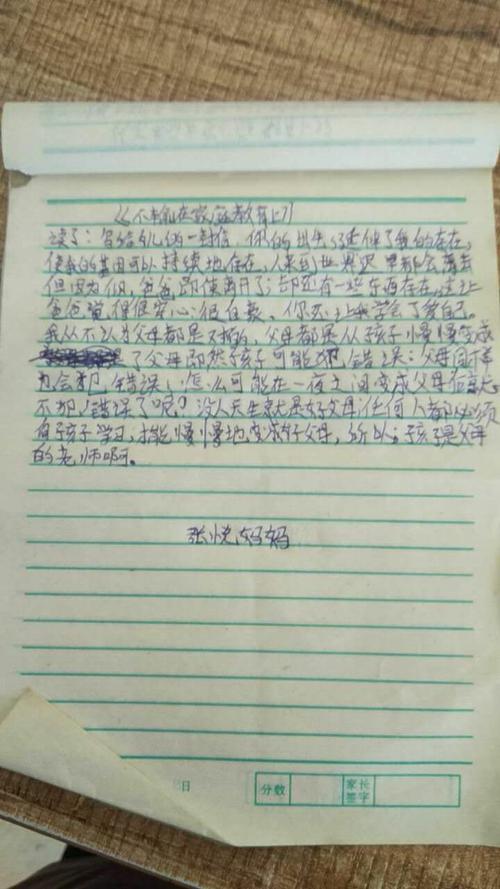 《不输在家庭教育上》
读了：写给女儿的一封信，你的出生，延伸了我的存在，
使我的基因可以持续地存在，人来到世界迟早都会离去
但因为你，爸爸即使离开了；却还有一些东西存在，这让
爸爸觉得很安心很自豪、你亦让我学会了爱自己。
我从不认为父母都是不错的，父母都是从孩子慢慢变成
了父母即然孩子可能犯错误：父母同样
也会犯错误，怎么可能在一夜之间变成父母后就
不犯错误了呢？没人天生就是好父母；任何人都必须
向孩子学习；才能慢慢地变成好父母，所以；孩子是父母
的老师啊。
张悦妈妈
日
分数
家长
签字